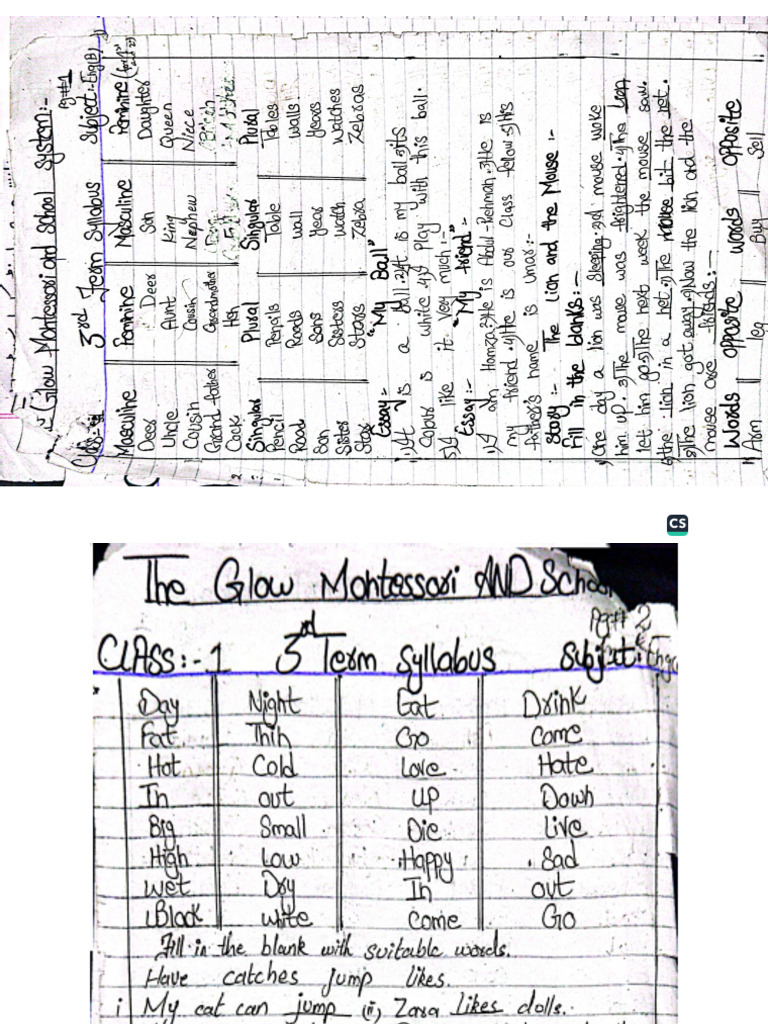 Glow Montessori and School System:-
Pg#1
Class:- 3rd Term Syllabus Subject:- Eng(B)
Masculine Feminine Masculine Feminine
Deer Deer Son Daughter
Uncle Aunt King Queen
Cousin Cousin Nephew Niece
Grand father Grandmother
Cock Hen
Singular Plural Singular Plural
Pencil Pencils Table Tables
Road Roads wall walls
Son Sons Year Years
Sister Sisters watch watches
Star Stars Zebra Zebras
Essay:- "My Ball"
1) It is a Ball. 2) It is my ball. 3) Its
Colour is white. 4) I Play with this ball.
5) I like it very much:-
Essay:- "My friend":-
1) I am Hamza. 2) He is Abdul-Rehman. 3) He is
my friend. 4) He is our Class fellow. 5) His
father's name is Umar:-
Story:- The Lion and the Mouse:-
Fill in the blanks:-
1) One day a lion was sleeping. 2) A mouse woke
him up. 3) The mouse was frightened. 4) The lion
let him go. 5) The next week the mouse saw.
6) the lion in a net. 7) The mouse bit the net.
8) The lion got away. 9) Now the lion and the
mouse are friends:-
Words opposite words opposite
Arm leg Buy Sell
CS
The Glow Montessori AND School
Pg# 2
CLASS:- 1 3rd Term Syllabus Subject:
Day Night Eat Drink
Fat Thin Go Come
Hot Cold Love Hate
In out UP Down
Big Small Die Live
High Low Happy Sad
Wet Dry In out
Black white Come Go
Fill in the blank with suitable words.
Have catches jump likes.
i My cat can jump (ii) Zara likes dolls.